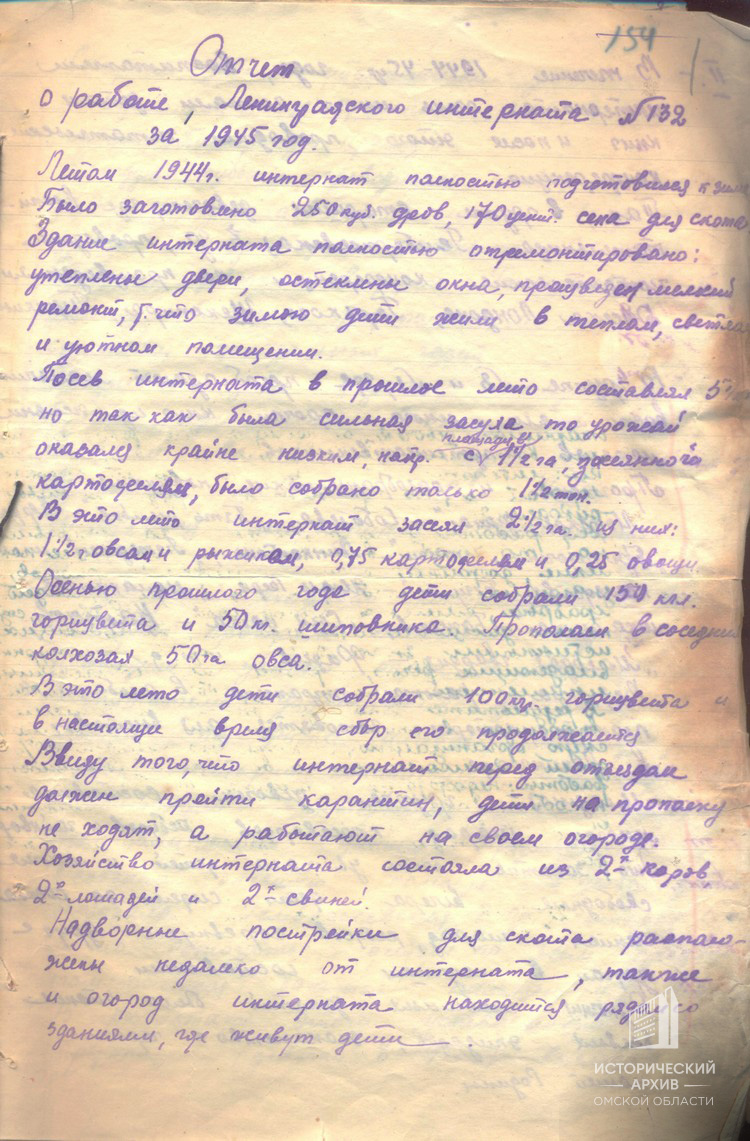 154
Отчет
о работе, Ленинградского интерната №132
за 1945 год.
Летом 1944г. интернат полностью подготовился к зиме
Было заготовлено 250 куб. дров, 170 цент. сена для скота
Здание интерната полностью отремонтировано:
утеплены двери, остеклены окна, произведен мелкий
ремонт, т.что зимою дети жили в теплом, светлом
и уютном помещении.
Посев интерната в прошлое лето составлял 5
но так как была сильная засуха то урожай
оказался крайне низким, напр. с площади в 1½ га, засеянной
картофелем, было собрано только 1½ тон.
В это лето интернат засеял 2½ га. из них:
1½ г овсом и рыжиком, 0,75 картофелем и 0,25 овощи.
Осенью прошлого года дети собрали 150 кгл.
горицвета и 50 кг. шиповника. Пропололи в соседних
колхозах 50 га овса.
В это лето дети собрали 100 кгр. горицвета и
в настоящи время сбор его продолжается
Ввиду того, что интернат перед отъездом
должен пройти карантин, дети на прополку
не ходят, а работают на своем огороде.
Хозяйство интерната состояла из 2х коров
2х лошадей и 2х свиней.
Надворные постройки для скота располо-
жены недалеко от интерната, также
и огород интерната находится рядом со
зданиями, где живут дети
ИСТОРИЧЕСКИЙ
АРХИВ
ОМСКОЙ ОБЛАСТИ